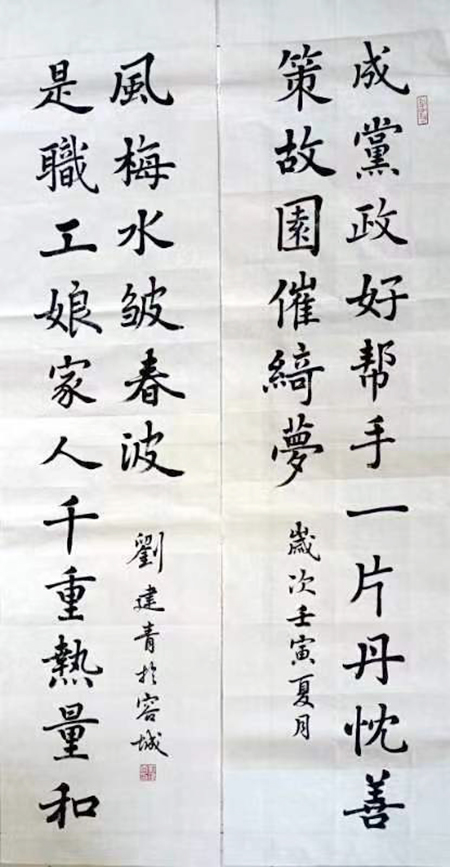 成黨政好帮手一片丹忱善
策故園催綺夢
歲次壬寅夏月
是職工娘家人千重熱量和
風梅水皺春波
劉建青於容城